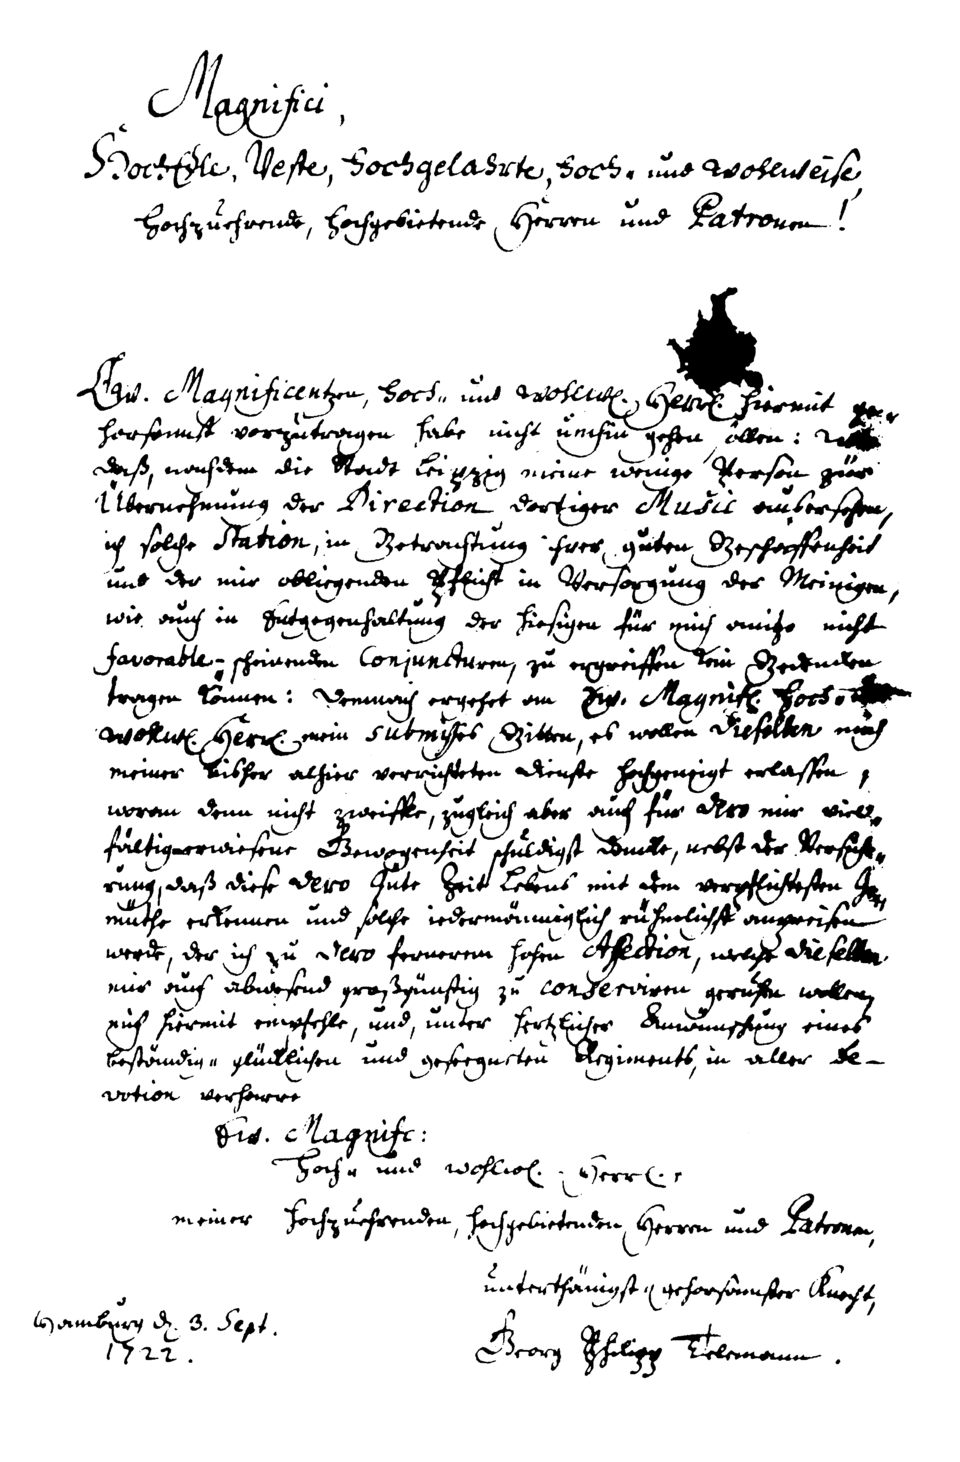 Magnifici,
HochEdle, Veste, Hochgelahrte, Hoch- und Wohlweise,
Hochzuehrende, Hochgebietende Herren und Patronen!
Ew. Magnificentzen, Hoch- und Wohlw. Herrl. hiermit ge-
horsamst vorzutragen habe nicht umhin gehen sollen:
daß, nachdem die Stadt Leipzig meine wenige Person zur
Übernehmung der Direction dortiger Music ausersehen,
ich solche Station, in Betrachtung ihrer guten Beschaffenheit
und der mir obliegenden Pflicht in Versorgung der Meinigen,
wie auch in Entgegenhaltung der hiesigen für mich anitzo nicht
favorable-scheinenden Conjuncturen, zu ergreiffen kein Bedencken
tragen können: Demnach ergehet an Ew. Magnif. Hoch-
Wohlw. Herrl. mein submisses Bitten, es wollen Dieselben mich
meiner bisher alhier verrichteten Dienste hochgeneigt erlassen,
woran denn nicht zweifle, zugleich aber auch für Dero mir viel-
fältig-erwiesene Gewogenheit schuldigst dancke, nebst der Versiche-
rung, daß diese Dero Güte Zeit Lebens mit dem verpflichtesten Ge-
müthe erkennen und solche iedermänniglich rühmlichst anpreisen
werde, der ich zu Dero fernerem hohen Affection, welche Dieselben
mir auch abwesend großgünstig zu conserviren geruhen wollen,
mich hiermit empfehle, und, unter hertzlicher Anwünschung eines
beständig-glücklichen und geseegneten Regiments, in aller De-
votion verharre
Ew. Magnific:
Hoch- und Wohlw. Herrl.
meiner Hochzuehrenden, Hochgebietenden Herren und Patronen,
unterthänigst-gehorsamster Knecht,
Hamburg d. 3. Sept.
1722.
Georg Philipp Telemann.